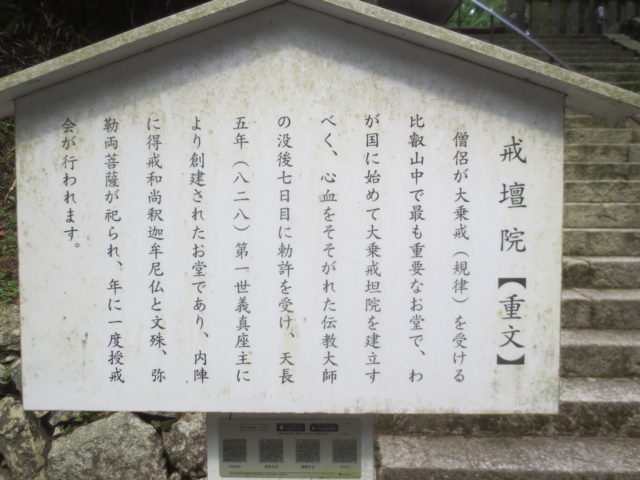 戒壇院【重文】
僧侶が大乗戒（規律）を受ける
比叡山中で最も重要なお堂で、わ
が国に始めて大乗戒坦院を建立す
べく、心血をそそがれた伝教大師
の没後七日目に勅許を受け、天長
五年（八二八）第一世義真座主に
より創建されたお堂であり、内陣
に得戒和尚釈迦牟尼仏と文殊、弥
勒両菩薩が祀られ、年に一度授戒
会が行われます。
English